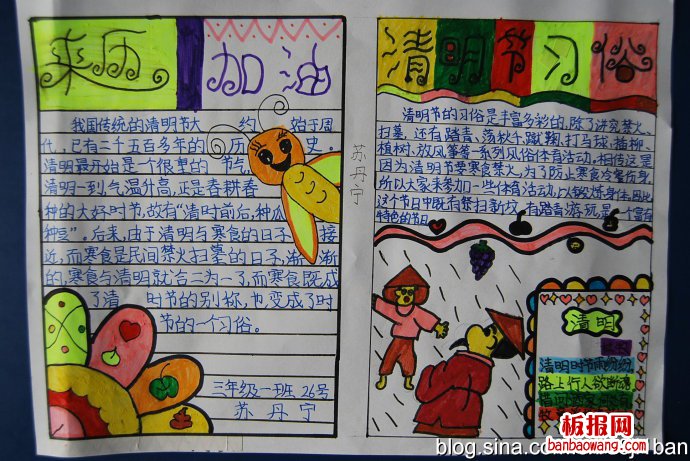 来历
加油
我国传统的清明节大约始于周
代,已有二千五百多年的历史。
清明最开始是一个很重的节气,
清明一到,气温升高,正是春耕春
种的大好时节,故有“清时前后,种瓜
种豆”,后来,由于清明与寒食的日子接
近,而寒食是民间禁火扫墓的日子,渐渐
的寒食与清明就合二为一了,而寒食既成
了清时节的别称,也变成了时
节的一个习俗。
三年级一班 26号
苏丹宁
苏丹宁
清明节习俗
清明节的习俗是丰富多彩的,除了讲究禁火、
扫墓,还有踏青、荡秋千、蹴鞠、打马球、插柳、
植树、放风筝等一系列风俗体育活动,相传这是
因为清明节要寒食禁火,为了防止寒食冷餐伤身,
所以大家来参加一些体育活动,以锻炼身体,因此
这个节日中既有祭扫新坟,有踏青游玩,是一个富有
特色的节日
清明
清明时节雨纷纷
路上行人欲断魂
板报网
banbaowang.com
blog.sina.co
ban